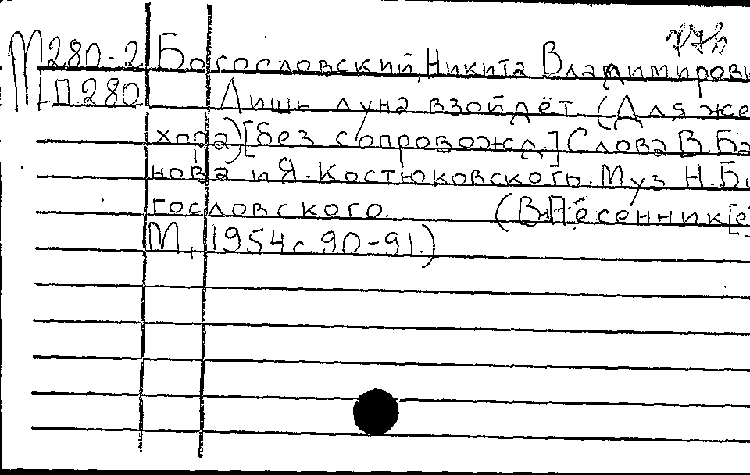 М280-2 Богословский, Никита Владимирови
П280 Лишь луна взойдёт (Для же
хора) [без сопровожд.] Слова В. Ба
нова и Я. Костюковского. Муз. Н. Бо
гословского (В кн.: Песенник[е]
М., 1954 с. 90-91.)